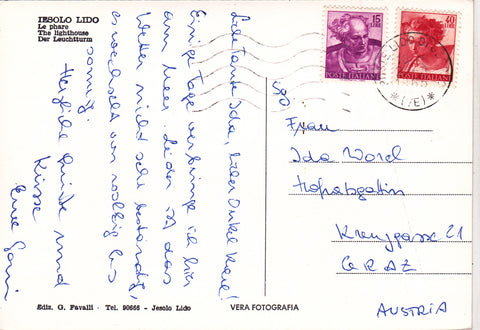 IESOLO LIDO
Le phare
The lighthouse
Der Leuchtturm
Liebe Tante Ida, lieber Onkel Karl!
Einige Tage verbringe ich hier
am Meer. Leider ist das
Wetter nicht sehr beständig,
es wechselt von wolkig bis
sonnig.
Herzliche Grüße und
Küsse
Eure
15
LIRE
POSTE ITALIANE
40
LIRE
POSTE ITALIANE
*(VE)*
Frau
Ida Worel
Kreuzgasse 21
GRAZ
AUSTRIA
Ediz. G. Favalli - Tel. 90666 - Jesolo Lido
VERA FOTOGRAFIA